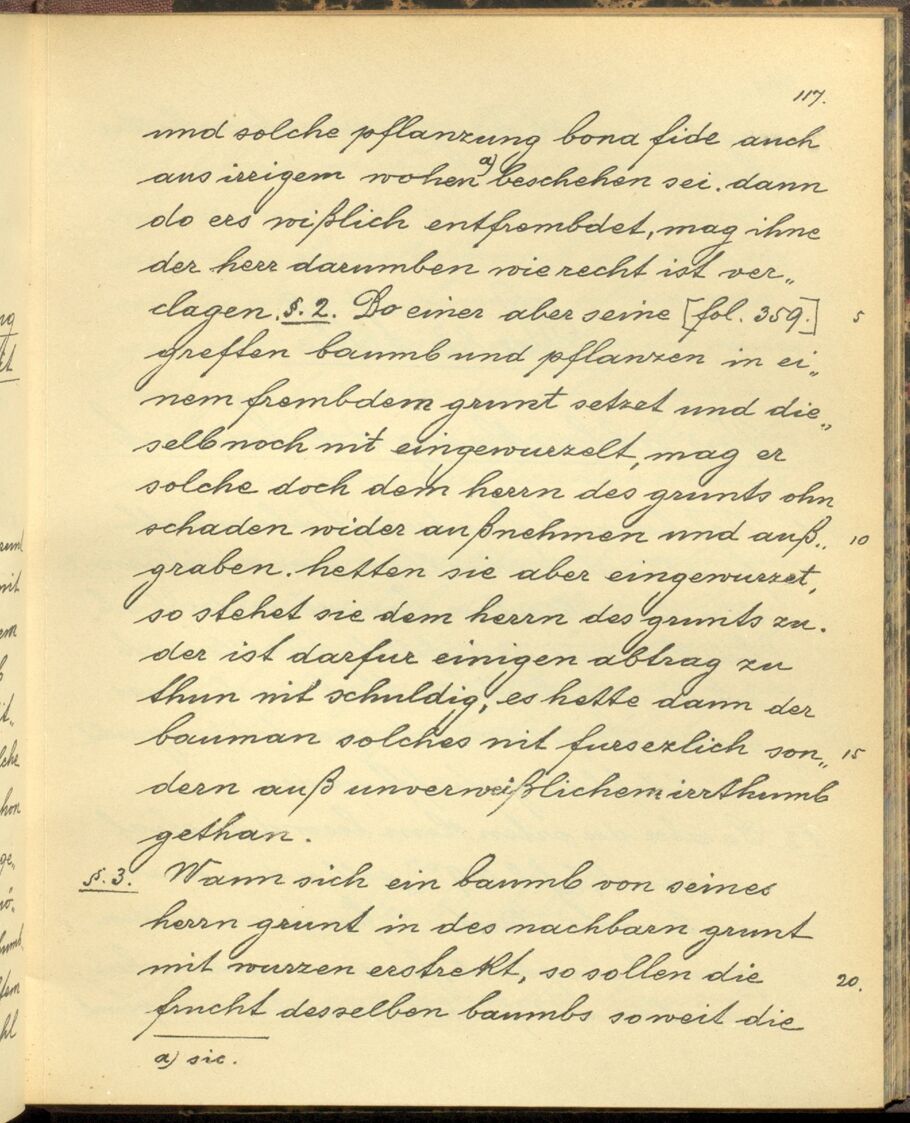 117.
und solche pflanzung bona fide auch
aus irrigem wohen a) beschehen sei. dann
do ers wißlich entfrembdet, mag ihne
der herr darumben wie recht ist ver„
clagen. §. 2. Do einer aber seine [fol. 359.] 5
greften baumb und pflanzen in ei„
nem frembdem grunt setzet und die„
selb noch nit eingewurzelt, mag er
solche doch dem herrn des grunts ohn
schaden wider außnehmen und auß„ 10
graben. hetten sie aber eingewurzet,
so stehet sie dem herrn des grunts zu.
der ist darfur einigen abtrag zu
thun nit schuldig, es hette dann der
bauman solches nit fursezlich son„ 15
dern auß unverweißlichem irrthumb
gethan.
§. 3. Wann sich ein baumb von seines
herrn grunt in des nachbarn grunt
mit wurzen erstrekt, so sollen die 20.
frucht desselben baumbs soweit die
a) sic.